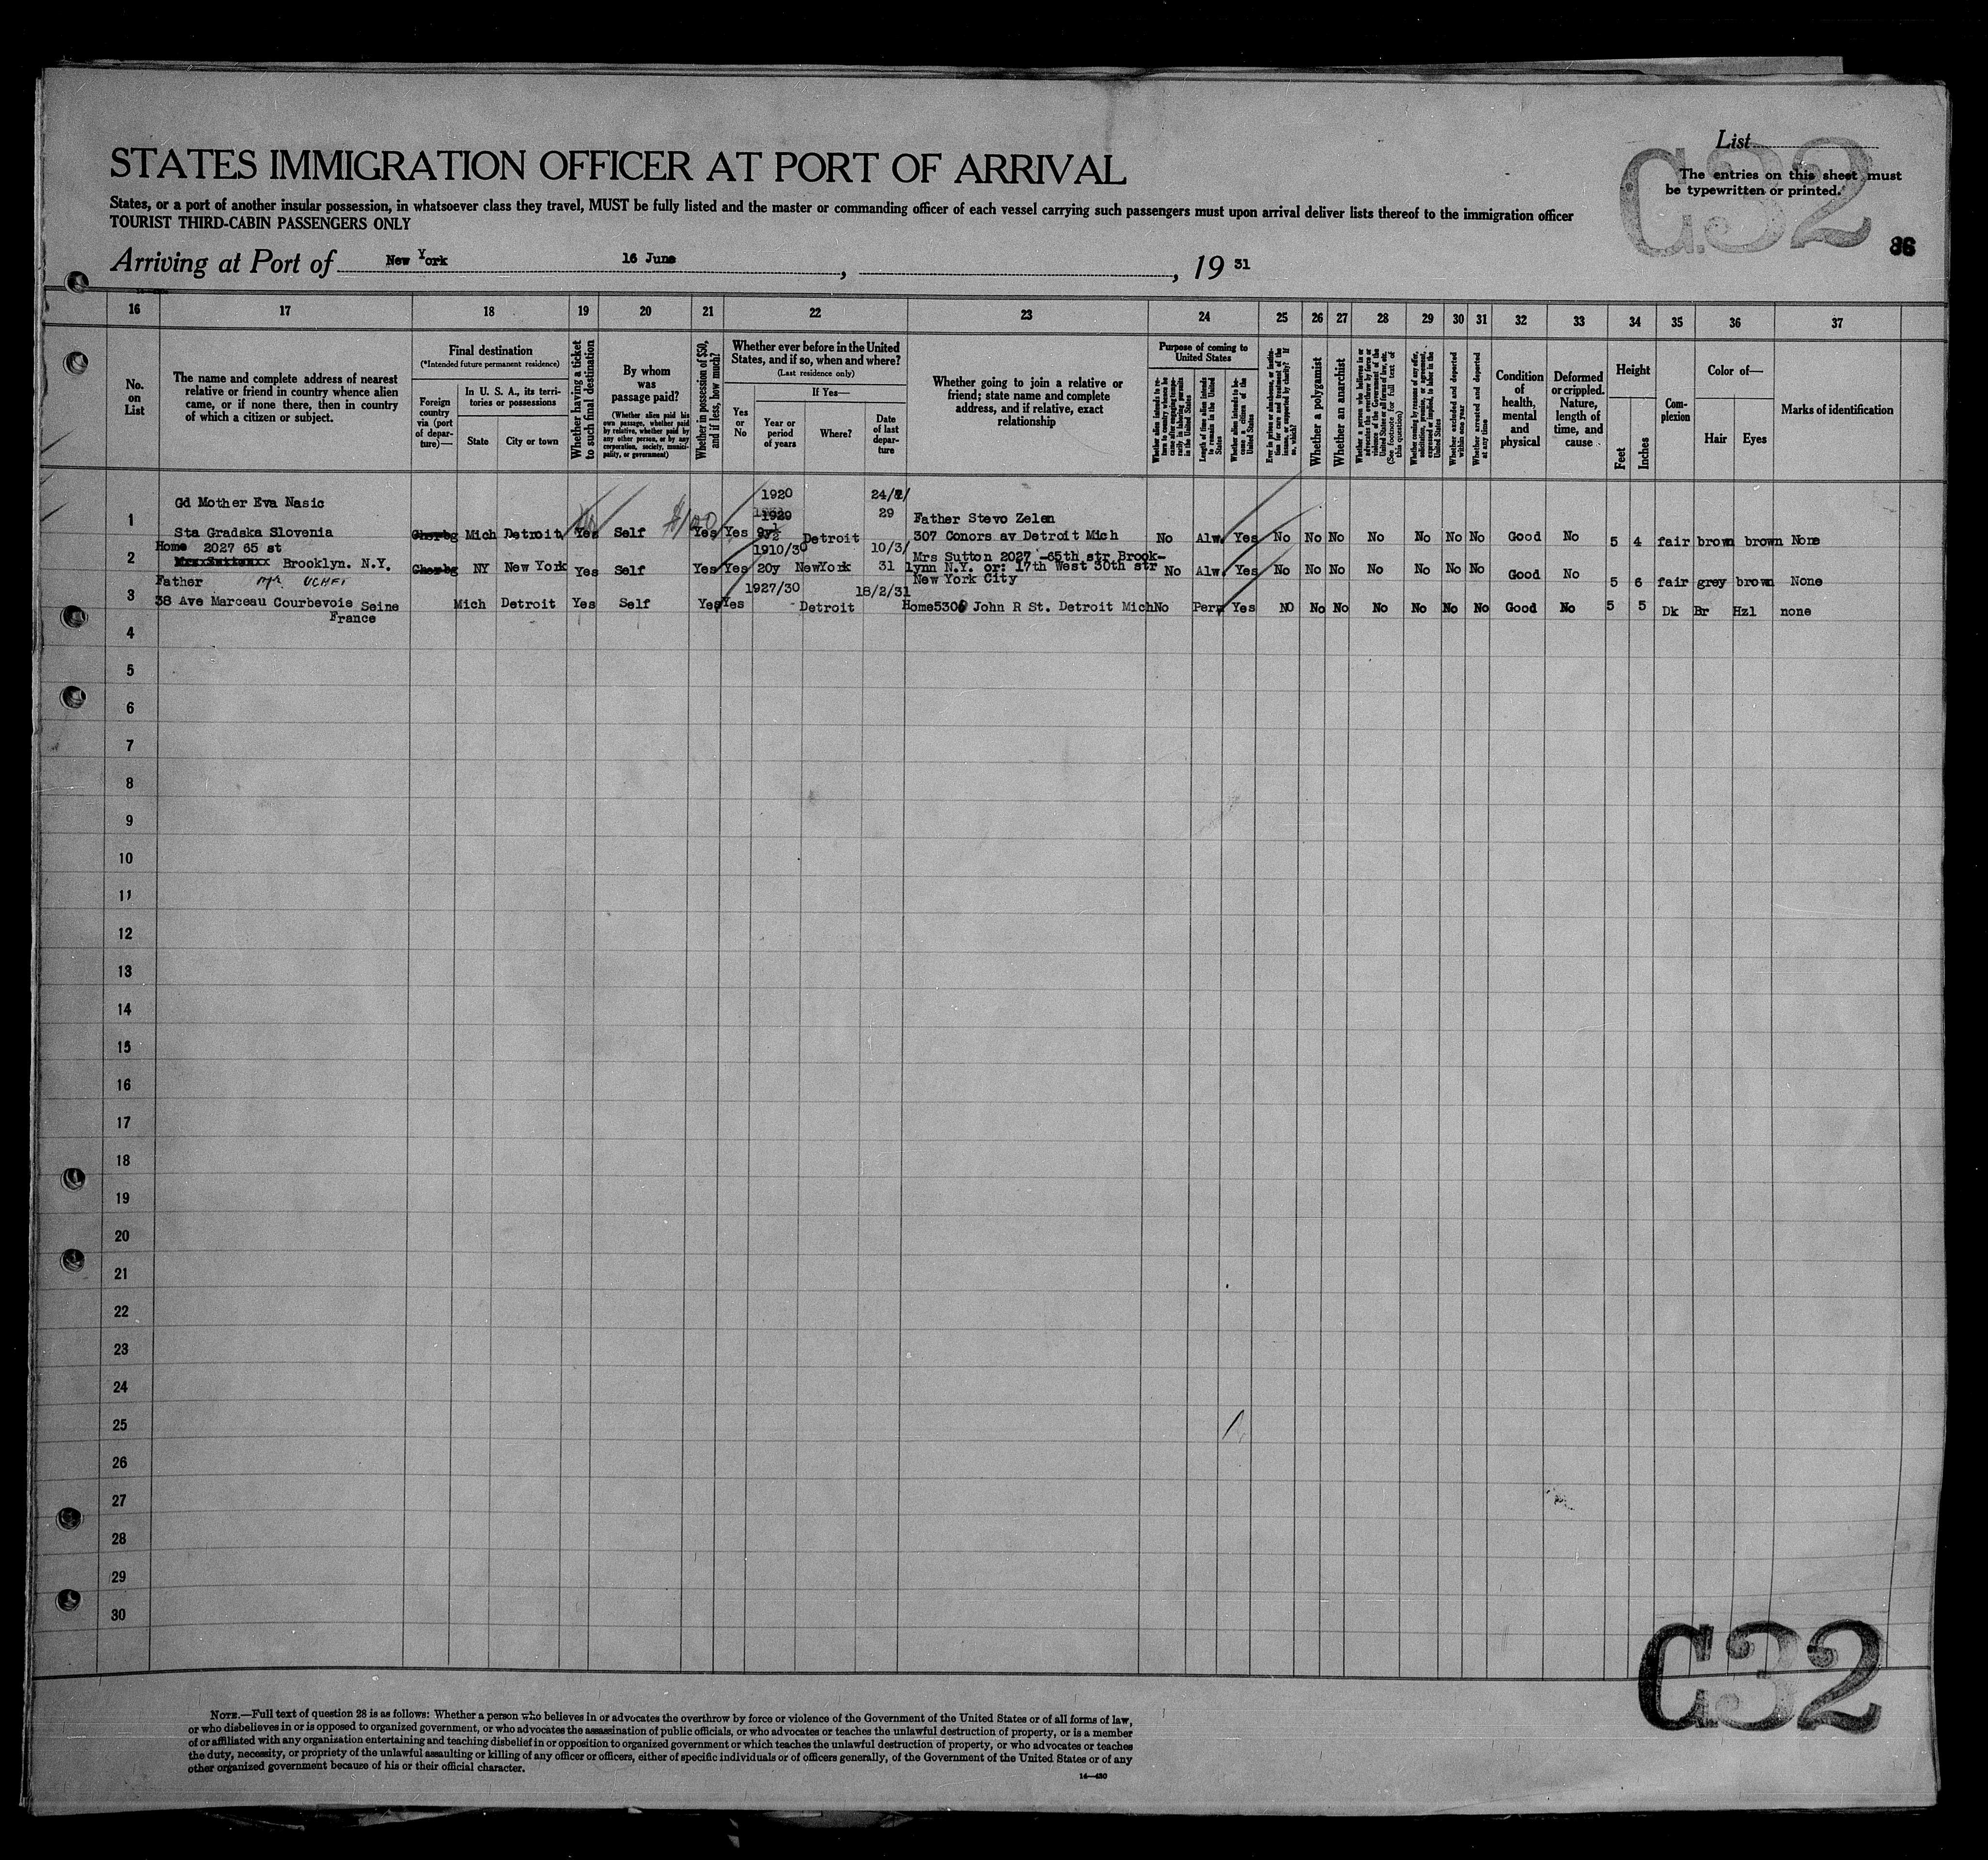 List
The entries on this sheet must
be typewritten or printed.
C32
86
STATES IMMIGRATION OFFICER AT PORT OF ARRIVAL
States, or a port of another insular possession, in whatsoever class they travel, MUST be fully listed and the master or commanding officer of each vessel carrying such passengers must upon arrival deliver lists thereof to the immigration officer
TOURIST THIRD-CABIN PASSENGERS ONLY
Arriving at Port of New York 16 June, , 19 31
16 17 18 19 20 21 22 23 24 25 26 27 28 29 30 31 32 33 34 35 36 37
No.
on
List
The name and complete address of nearest
relative or friend in country whence alien
came, or if none there, then in country
of which a citizen or subject.
Final destination
(*Intended future permanent residence)
Foreign
country
via (port
of depar-
ture)—
In U. S. A., its terri-
tories or possessions
State
City or town
Whether having a ticket
to such final destination
By whom
was
passage paid?
(Whether alien paid his
own passage, whether paid
by relative, whether paid by
any other person, or by any
corporation, society, munici-
pality, or government)
Whether in possession of $50,
and if less, how much?
Whether ever before in the United
States, and if so, when and where?
(Last residence only)
Yes
or
No
If Yes—
Year or
period
of years
Where?
Date
of last
depar-
ture
Whether going to join a relative or
friend; state name and complete
address, and if relative, exact
relationship
Purpose of coming to
United States
Whether alien intends to re-
turn to country whence he
came after engaging tempo-
rarily in laboring pursuits
in the United States
Length of time alien intends
to remain in the United
States
Whether alien intends to be-
come a citizen of the
United States
Ever in prison or almshouse, or institu-
tion for care and treatment of the
insane, or supported by charity? If
so, which?
Whether a polygamist
Whether an anarchist
Whether a person who believes in or
advocates the overthrow by force or
violence of the Government of the
United States or all forms of law, etc.
(See footnote for full text of
this question)
Whether coming by reason of any offer,
solicitation, promise, or agreement,
expressed or implied, to labor in the
United States
Whether excluded and deported
within one year
Whether arrested and deported
at any time
Condition
of
health,
mental
and
physical
Deformed
or crippled.
Nature,
length of
time, and
cause
Height
Feet
Inches
Com-
plexion
Color of—
Hair
Eyes
Marks of identification
Gd Mother Eva Nasic 1920 24/
1929 29 Father Stevo Zelen
1 Sta Gradska Slovenia Cherbg Mich Detroit Yes Self $100 Yes Yes Detroit 307 Conors av Detroit Mich No Alw Yes No No No No No No No Good No 5 4 fair brown brown None
Home 2027 65 st 1910/30 10/3/ Mrs Sutton 2027 -65th str Brook-
2 Brooklyn. N.Y. Cherbg NY New York Yes Self Yes Yes 20y NewYork 31 lynn N.Y. or: 17th West 30th str No Alw. Yes No No No No No No No Good No 5 6 fair grey brown None
New York City
Father 1927/30 18/2/31
3 38 Ave Marceau Courbevoie Seine Mich Detroit Yes Self Yes Yes Detroit Home5306 John R St. Detroit Mich No Perm Yes NO No No No No No No Good No 5 5 Dk Br Hzl none
France
4
5
6
7
8
9
10
11
12
13
14
15
16
17
18
19
20
21
22
23
24
25
26
27
28
29
30
C32
NOTE.—Full text of question 28 is as follows: Whether a person who believes in or advocates the overthrow by force or violence of the Government of the United States or of all forms of law,
or who disbelieves in or is opposed to organized government, or who advocates the assassination of public officials, or who advocates or teaches the unlawful destruction of property, or is a member
of or affiliated with any organization entertaining and teaching disbelief in or opposition to organized government or which teaches the unlawful destruction of property, or who advocates or teaches
the duty, necessity, or propriety of the unlawful assaulting or killing of any officer or officers, either of specific individuals or of officers generally, of the Government of the United States or of any
other organized government because of his or their official character.
14—430